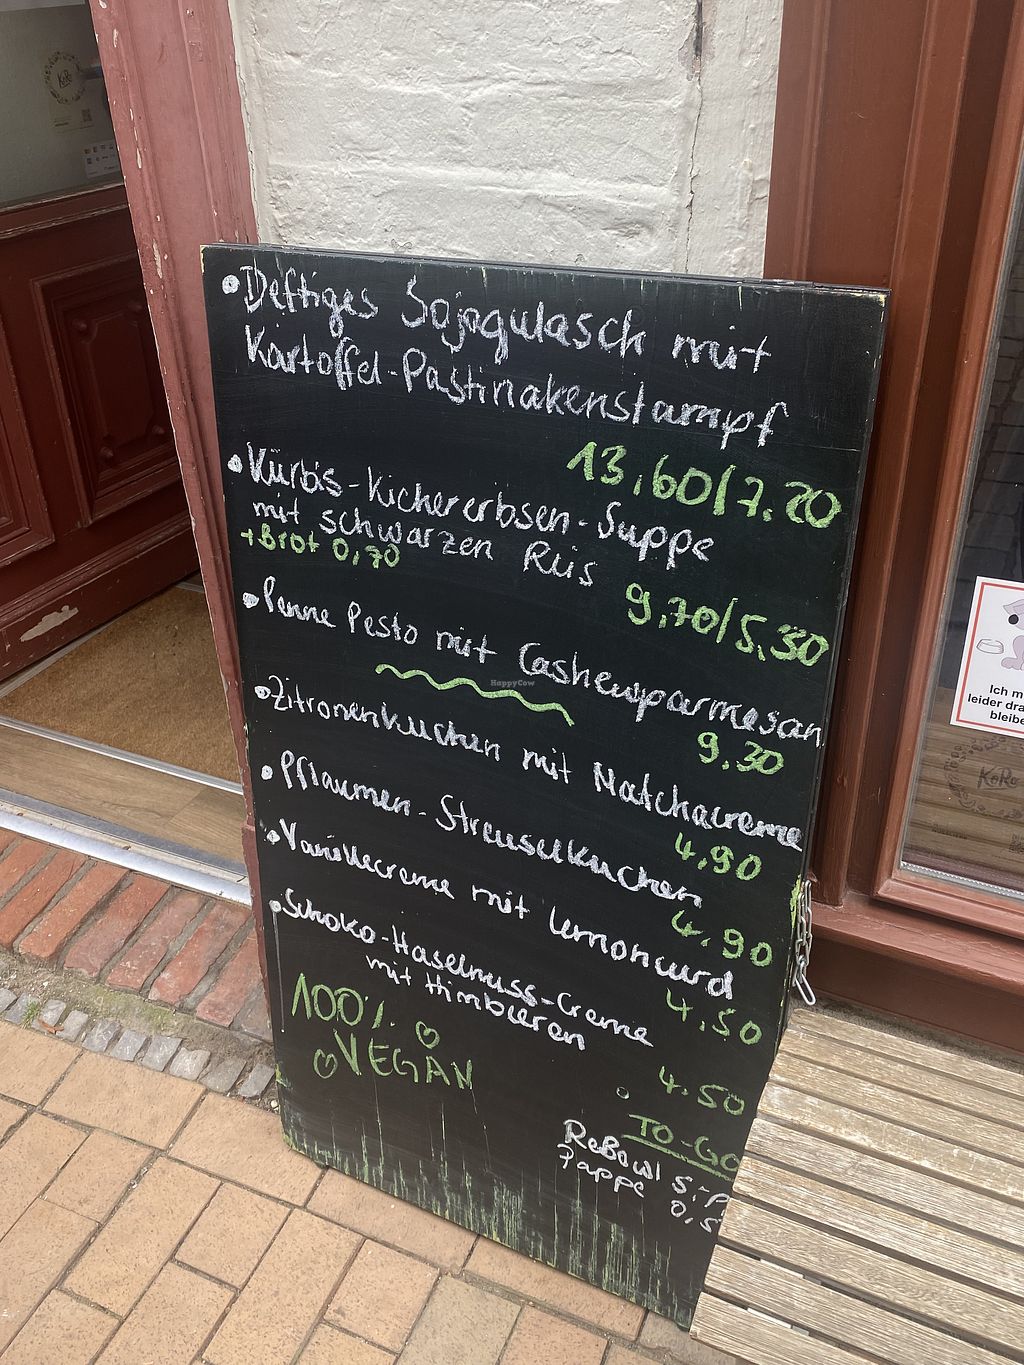 • Deftiges Sojagulasch mit
Kartoffel-Pastinakenstampf
13,60/7.20
• Kürbis-Kichererbsen-Suppe
mit schwarzen Reis
+Brot 0,70
9,70/5.30
• Penne Pesto mit Cashewparmesan
9.30
• Zitronenkuchen mit Matchacreme
4,90
• Pflaumen-Streuselkuchen
4.90
• Vanillecreme mit Lemoncurd
4.50
• Schoko-Haselnuss-Creme
mit Himbeeren
4.50
100%
VEGAN
TO-GO
ReBowl 5,-P
Pappe 0,5
HappyCow
KoRo
Ich m
leider dra
bleibe
KoRo